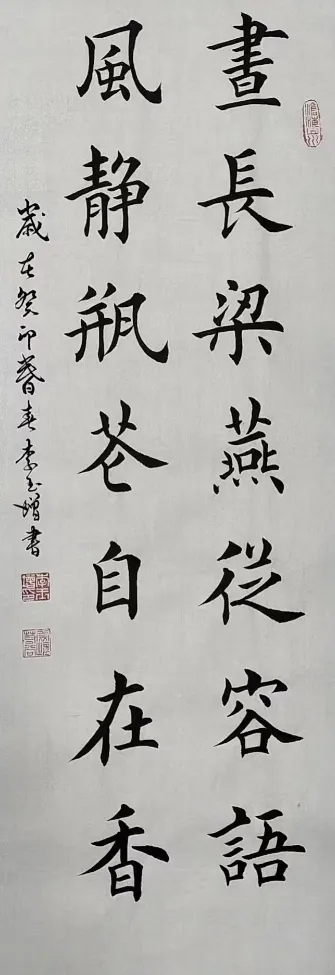 晝長梁燕從容語
風静瓶花自在香
歲在癸卯暮春李玉增書